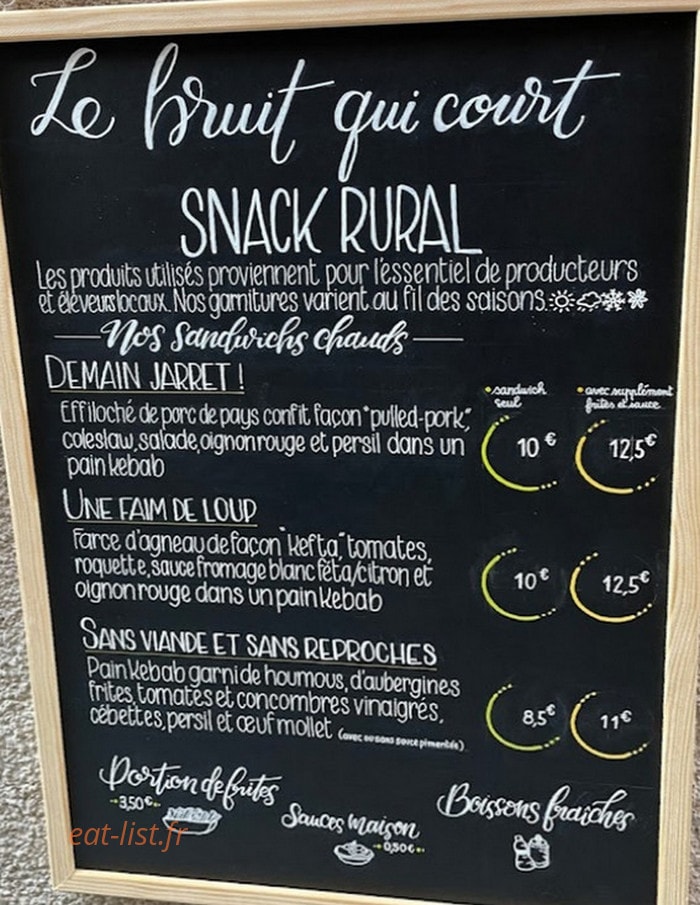 Le bruit qui court
SNACK RURAL
Les produits utilisés proviennent pour l'essentiel de producteurs
et éleveurs locaux. Nos garnitures varient au fil des saisons.
Nos sandwichs chauds
DEMAIN JARRET !
• sandwich seul
• avec supplément frites et sauce
Effiloché de porc de pays confit façon "pulled-pork",
coleslaw, salade, oignon rouge et persil dans un
pain kebab
10 € 12,5€
UNE FAIM DE LOUP
Farce d'agneau de façon "kefta", tomates,
roquette, sauce fromage blanc fêta/citron et
oignon rouge dans un pain kebab
10 € 12,5€
SANS VIANDE ET SANS REPROCHES
Pain kebab garni de houmous, d'aubergines
frites, tomates et concombres vinaigrés,
cébettes, persil et œuf mollet (avec ou sans sauce pimentée)
8,5€ 11€
Portion de frites
3,50€
Sauces maison
0,50€
Boissons fraîches
eat-list.fr